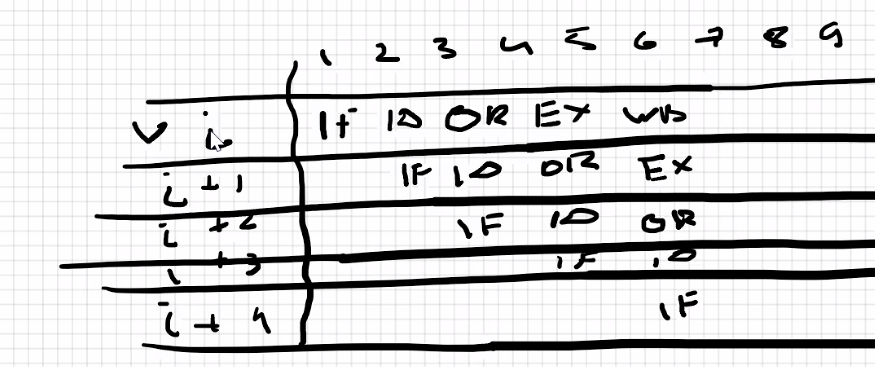 1 2 3 4 5 6 7 8 9
i IF ID OR EX WB
i + 1 IF ID OR EX
i + 2 IF ID OR
i + 3 IF ID
i + 4 IF